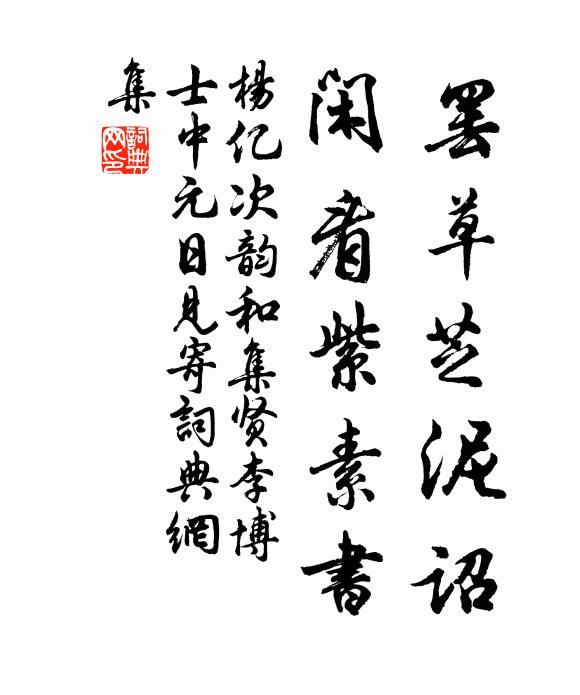 罢草芝泥诏
闲看紫素書
楊亿次韵和集贤李博
士中元日見寄詞典網
集
詞典
网印